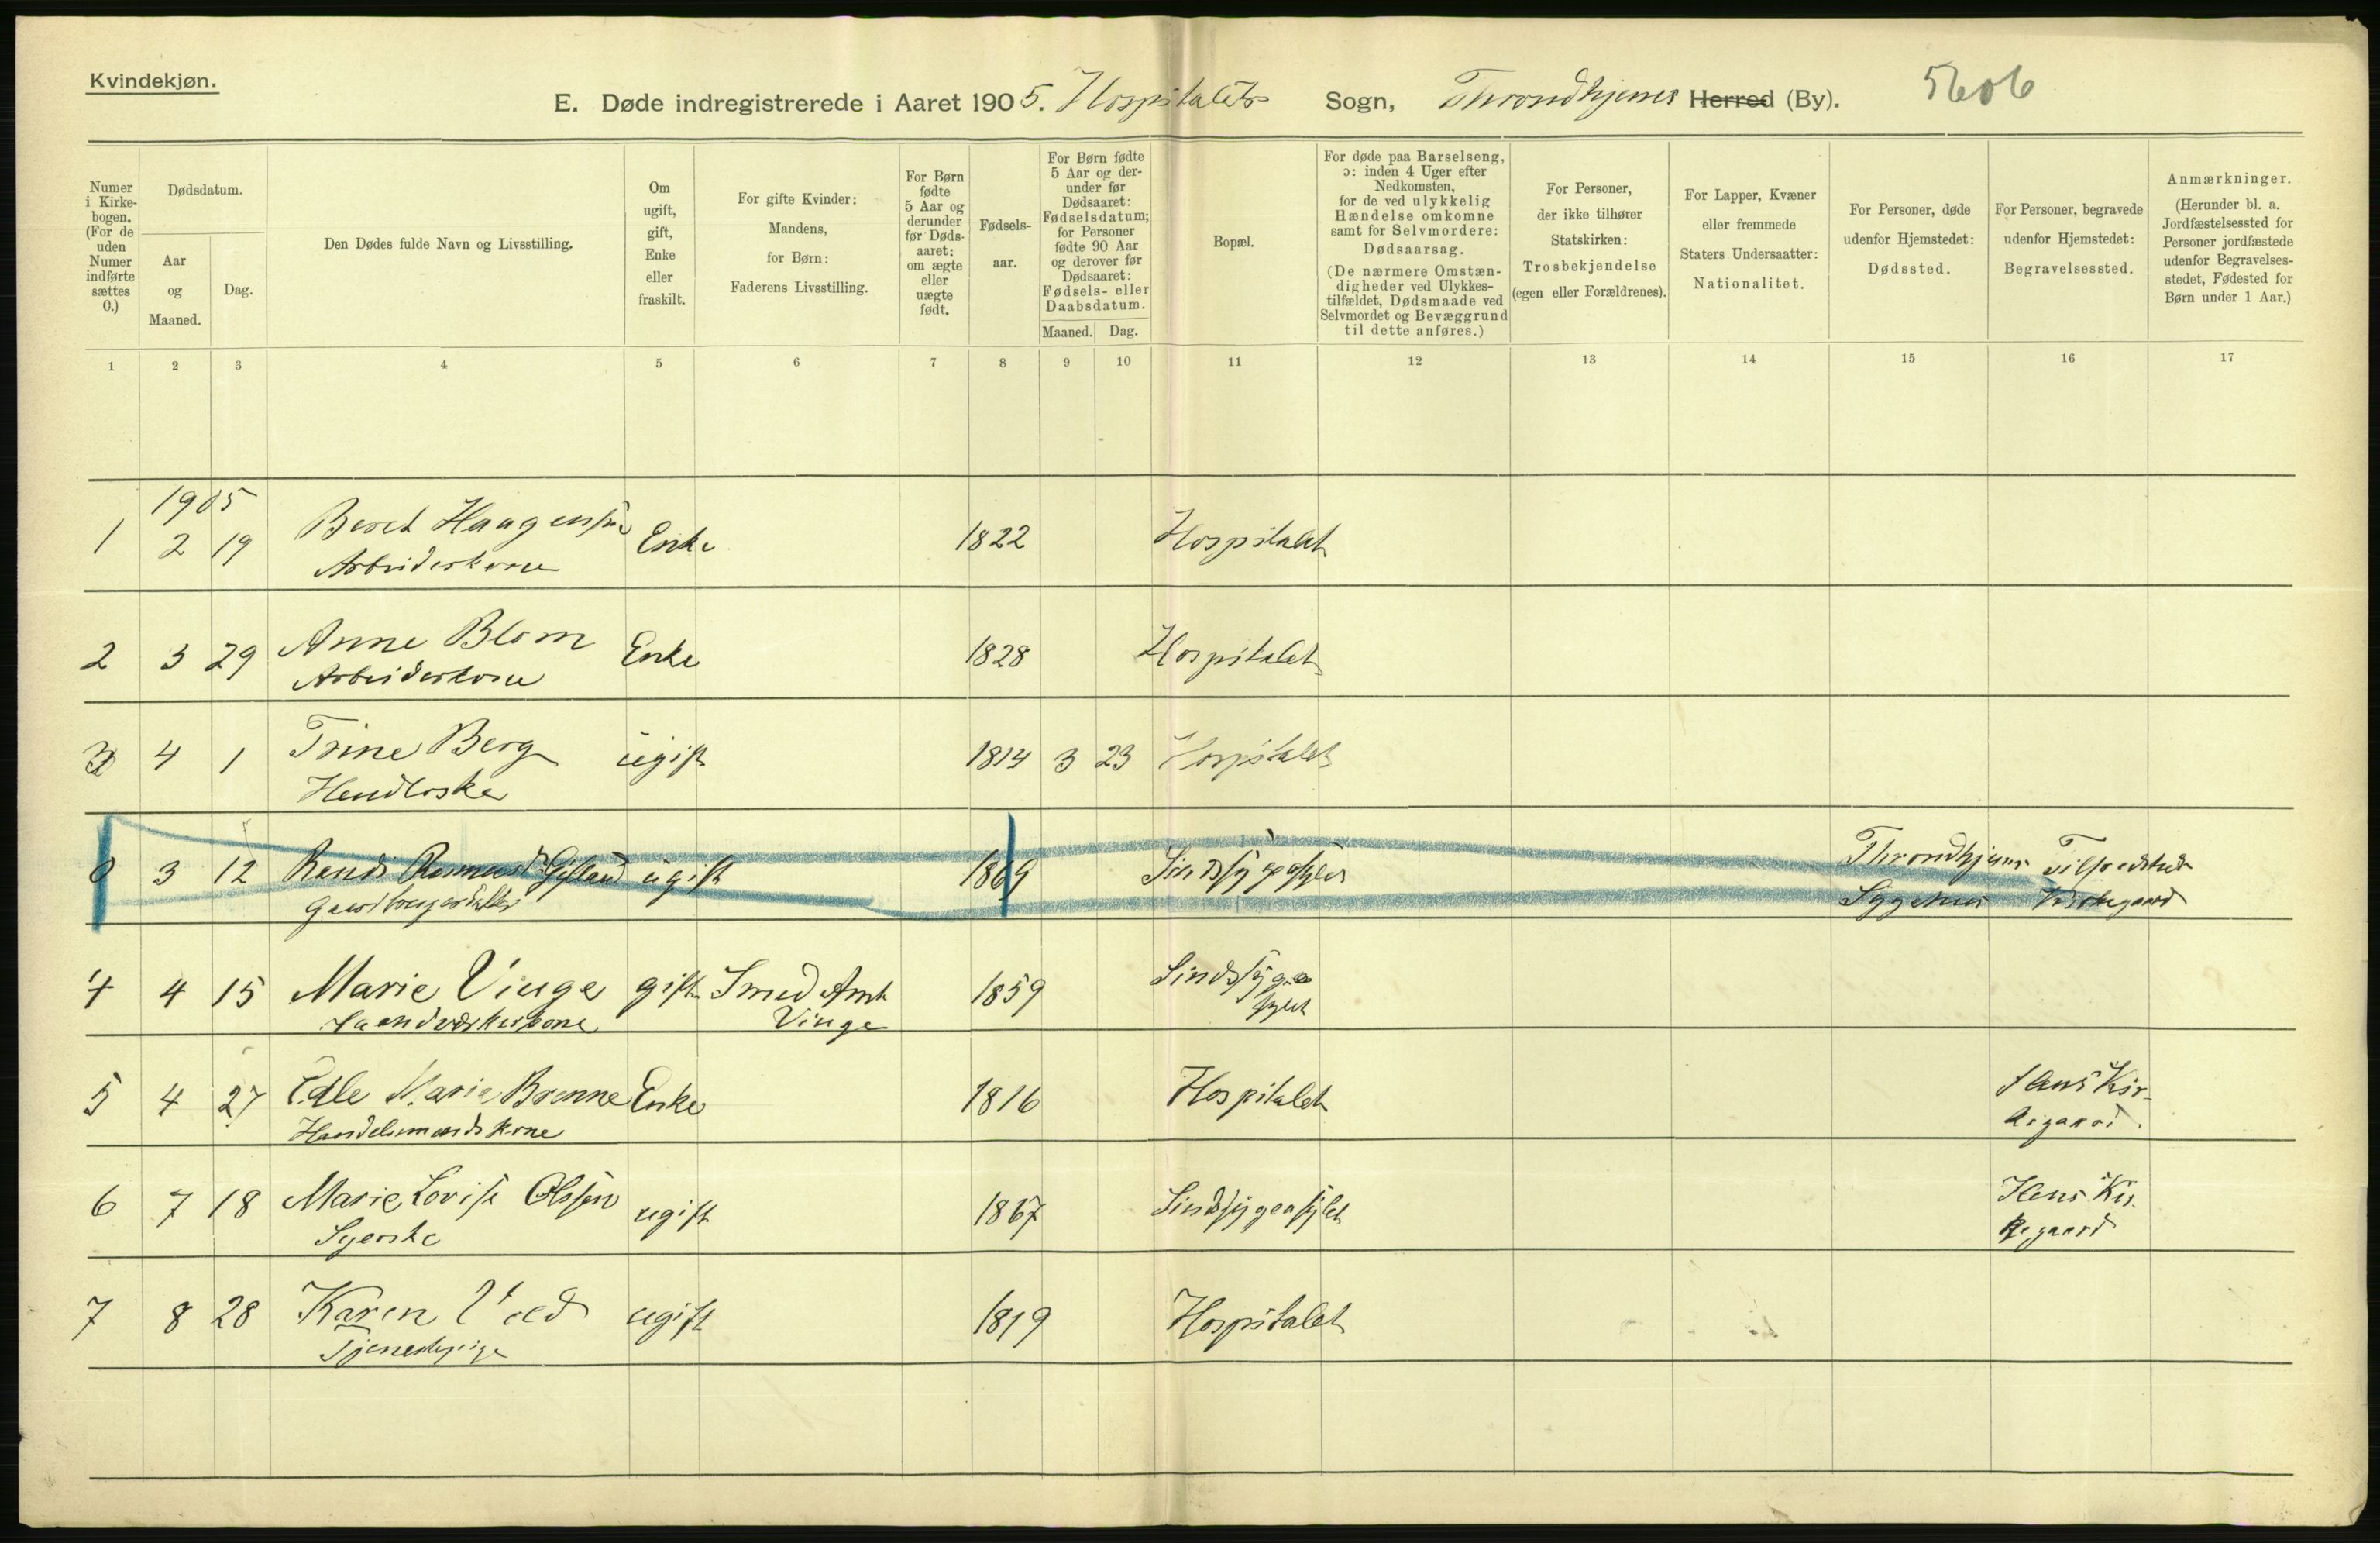 Kvindekjøn.
E. Døde indregistrerede i Aaret 1905. Hospitalets Sogn, Throndhjems Herred (By). 5606
Numer i Kirkebogen. (For de uden Numer indførte sættes 0.)
Dødsdatum.
Aar og Maaned.
Dag.
Den Dødes fulde Navn og Livsstilling.
Om ugift, gift, Enke eller fraskilt.
For gifte Kvinder: Mandens, for Børn: Faderens Livsstilling.
For Børn fødte 5 Aar og derunder før Dødsaaret: om ægte eller uægte født.
Fødselsaar.
For Børn fødte 5 Aar og derunder før Dødsaaret: Fødselsdatum; for Personer fødte 90 Aar og derover før Dødsaaret: Fødsels- eller Daabsdatum.
Maaned. Dag.
Bopæl.
For døde paa Barselseng, ɔ: inden 4 Uger efter Nedkomsten, for de ved ulykkelig Hændelse omkomne samt for Selvmordere: Dødsaarsag. (De nærmere Omstændigheder ved Ulykkestilfældet, Dødsmaade ved Selvmordet og Bevæggrund til dette anføres.)
For Personer, der ikke tilhører Statskirken: Trosbekjendelse (egen eller Forældrenes).
For Lapper, Kvæner eller fremmede Staters Undersaatter: Nationalitet.
For Personer, døde udenfor Hjemstedet: Dødssted.
For Personer, begravede udenfor Hjemstedet: Begravelsessted.
Anmærkninger. (Herunder bl. a. Jordfæstelsessted for Personer jordfæstede udenfor Begravelsesstedet, Fødested for Børn under 1 Aar.)
1 2 3 4 5 6 7 8 9 10 11 12 13 14 15 16 17
1905
1 2 19 Beret Haagensen Enke 1822 Hospitalet
Arbeiderkone
2 3 29 Anne Blom Enke 1828 Hospitalet
Arbeiderkone
3 4 1 Trine Berg ugift 1814 3 23 Hospitalet
0 3 12 Randi ugift 1869 Sindssygeasylet Throndhjems
Sygehus Kirkegaard
4 4 15 Marie Vinge gift Smed 1859 Sindssygea
Haandværkerkone Vinge sylet
5 4 27 Edle Marie Brenne Enke 1816 Hospitalet
Handelsmandskone
6 7 18 Marie Lovise Olssen ugift 1867 Sindssygeasylet
Syerske
7 8 28 Karen ugift 1819 Hospitalet
Tjenestepige